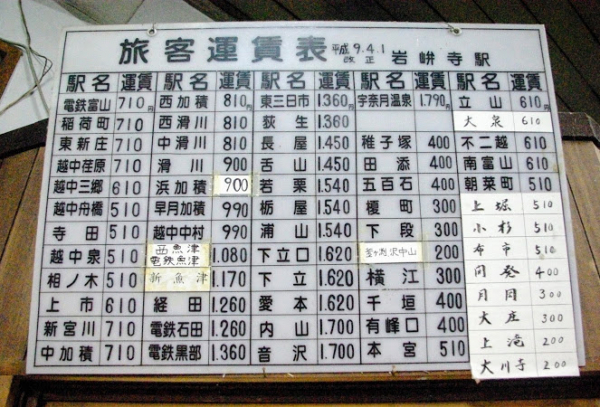 旅客運賃表 平成9.4.1改正 岩峅寺駅
駅名 運賃 駅名 運賃 駅名 運賃 駅名 運賃 駅名 運賃
電鉄富山 710円 西加積 810円 東三日市 1.360円 宇奈月温泉 1.790円 立山 610円
稲荷町 710 西滑川 810 荻生 1.360 大泉 610
東新庄 710 中滑川 810 長屋 1.450 稚子塚 400 不二越 610
越中荏原 710 滑川 900 舌山 1.450 田添 400 南富山 610
越中三郷 610 浜加積 900 若栗 1.540 五百石 400 朝菜町 510
越中舟橋 510 早月加積 990 栃屋 1.540 榎町 300 上堀 510
寺田 510 越中中村 990 浦山 1.540 下段 300 小杉 510
越中泉 510 西魚津 電鉄魚津 1.080 下立口 1.620 釜ヶ渕 沢中山 200 布市 510
相ノ木 510 新魚津 1.170 下立 1.620 横江 300 開発 400
上市 610 経田 1.260 愛本 1.620 千垣 400 月岡 300
新宮川 710 電鉄石田 1.260 内山 1.700 有峰口 400 大庄 300
中加積 710 電鉄黒部 1.360 音沢 1.700 本宮 510 上滝 200
大川寺 200